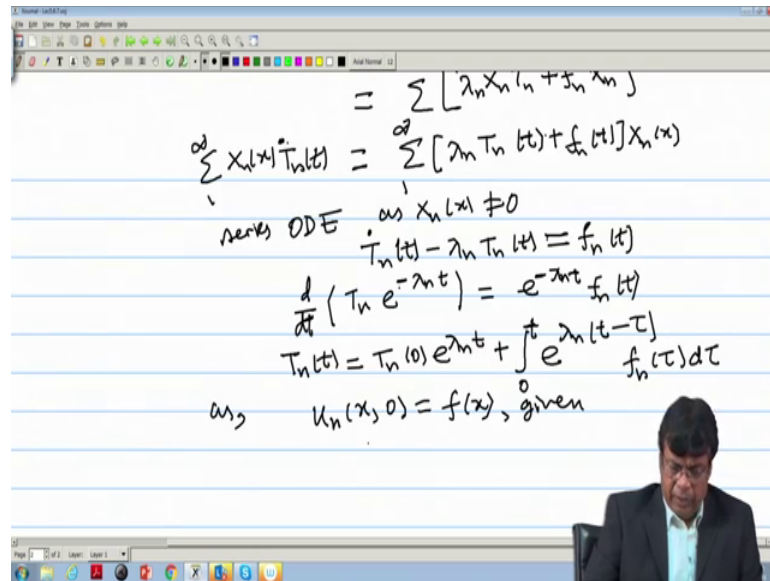 Journal - Lec5.6.7.xoj
File Edit View Page Tools Options Help
Arial Normal 12
= Σ [λn Xn Tn + fn Xn]
∞ Σ 1 Xn(x) Ṫn(t) = ∞ Σ 1 [λn Tn(t) + fn(t)] Xn(x)
series ODE as Xn(x) ≠ 0
Ṫn(t) - λn Tn(t) = fn(t)
d/dt (Tn e^{-λnt}) = e^{-λnt} fn(t)
Tn(t) = Tn(0) e^{λnt} + ∫_0^t e^{λn(t-τ)} fn(τ) dτ
as, un(x, 0) = f(x), given
Page 2 of 2 Layer: Layer 1